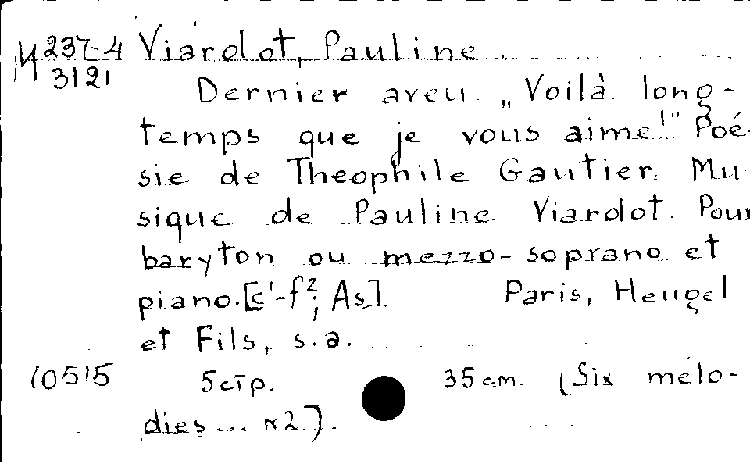 М 237-4 Viardot, Pauline
3121 Dernier aveu. „Voilà long-
temps que je vous aime!" Poé-
sie de Theophile Gautier. Mu-
sique de Pauline Viardot. Pour
baryton ou mezzo-soprano et
piano. [c¹-f²; As]. Paris, Heugel
et Fils, s.a.
10515 5 стр. 35 см. (Six mélo-
dies... №2.).